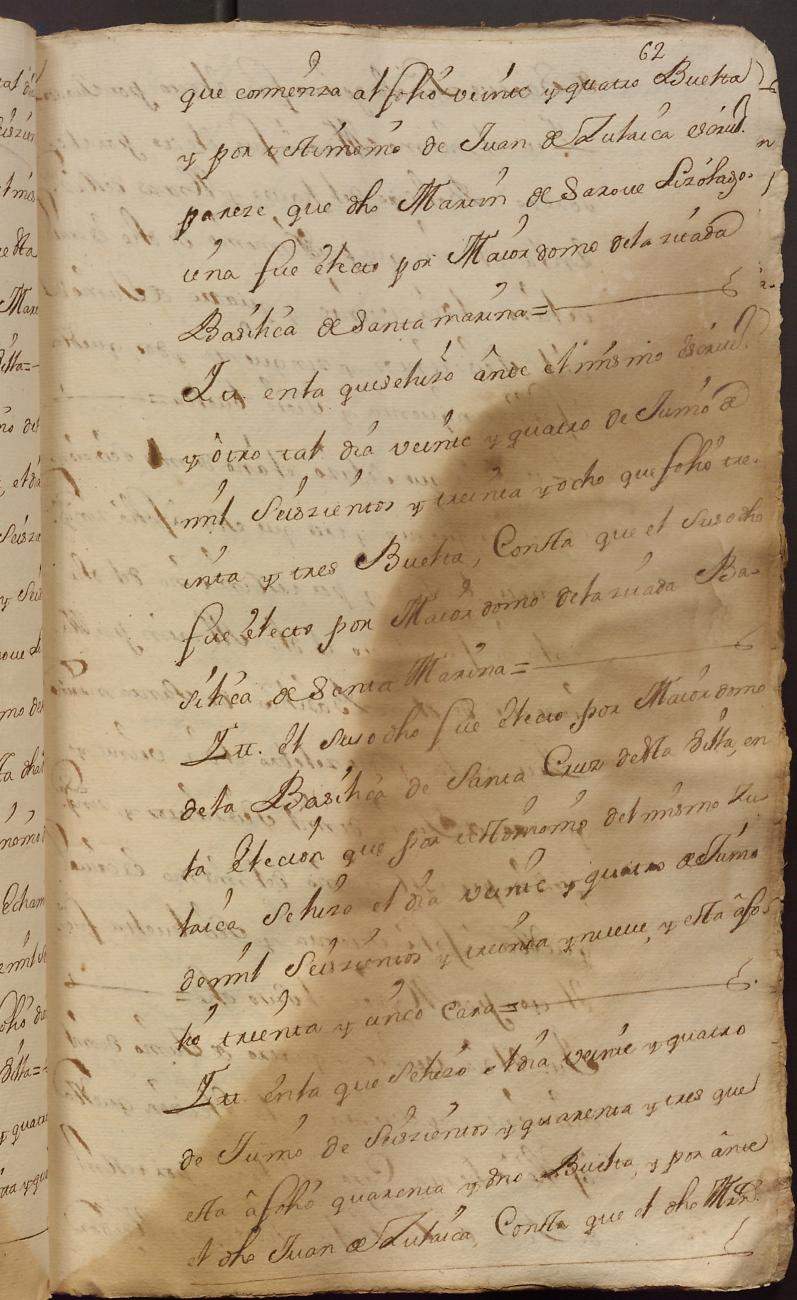 62
que comenza al folio veinte y quatro Buelta
y por testimonio de Juan de Zulaica escriu.º
pareze, que dho Martin de Saroue Lizolago-
ena fue electo por Maiordomo dela zitada
Basilica de Santa marina=
Itt. en la que se hizo ânte el mismo escriu.º
y ôtro tal dia veinte y quatro de Junio de
mil Seiszientos y treinta y ocho que folio tre-
inta y tres Buelta, Consta que el susodho
fue êlecto por Maiordomo dela zitada Ba-
silica de Santa Marina=
Itt. el susodho fue êlecto por Maiordomo
dela Basilica de Santa Cruz desta villa, en
la êleccion que por testimonio del mismo Zu
laica se hizo el dia veinte y quatro de Junio
de mil Seiszientos y treinta y nueve, y esta â fo-
lio treinta y cinco cara=
Itt. en la que se hizo el dia veinte y quatro
de Junio de Seiszientos y quarenta y tres que
esta â folio quarenta y dos Buelta, y por ânte
el dho Juan de Zulaica, Consta que el dho Mrn.